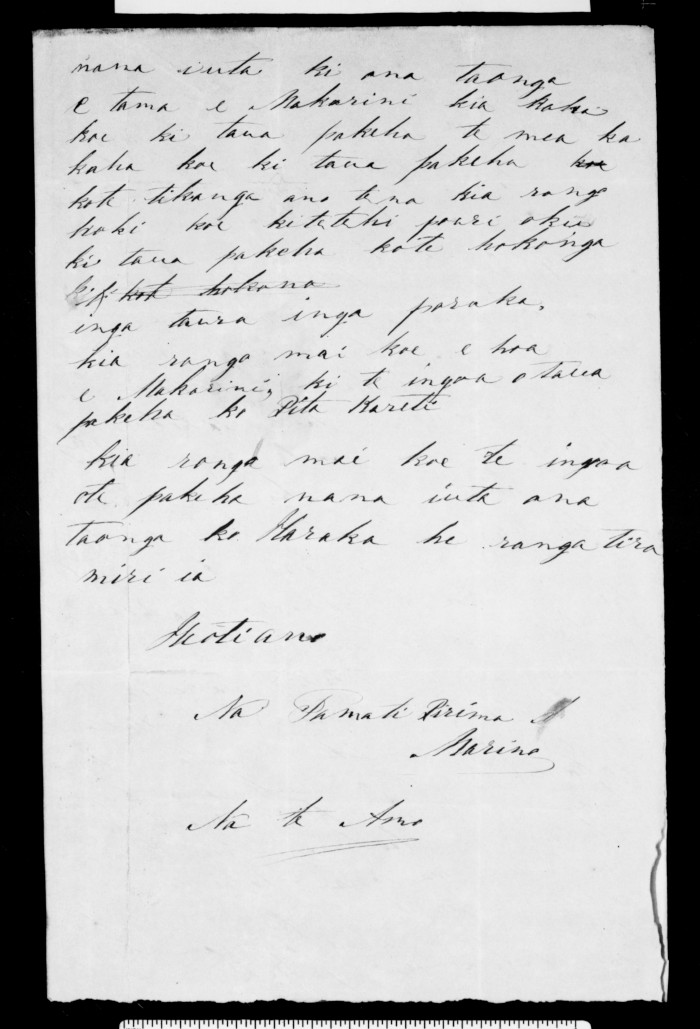 nana iuta ki ana taonga
e tama e Makarini kia kaha
koe ki taua pakeha te mea ka
kaha koe ki taua pakeha koe
kote tikanga ano tena kia rong
hoki koe kitetehi pouri okia
ki taua pakeha kote hokonga
kote hokona
inga taura inga poraka,
kia rongo mai koe e hoa
e Makarini, ki te ingoa o taua
pakeha ko Pita Kareti
kia rongo mai koe te ingoa
ote pakeha nana iuta ana
taonga ko Haraka he rangatira
miri ia
Heotiano
Na Tamati Pirima
Marino
Na te Amo